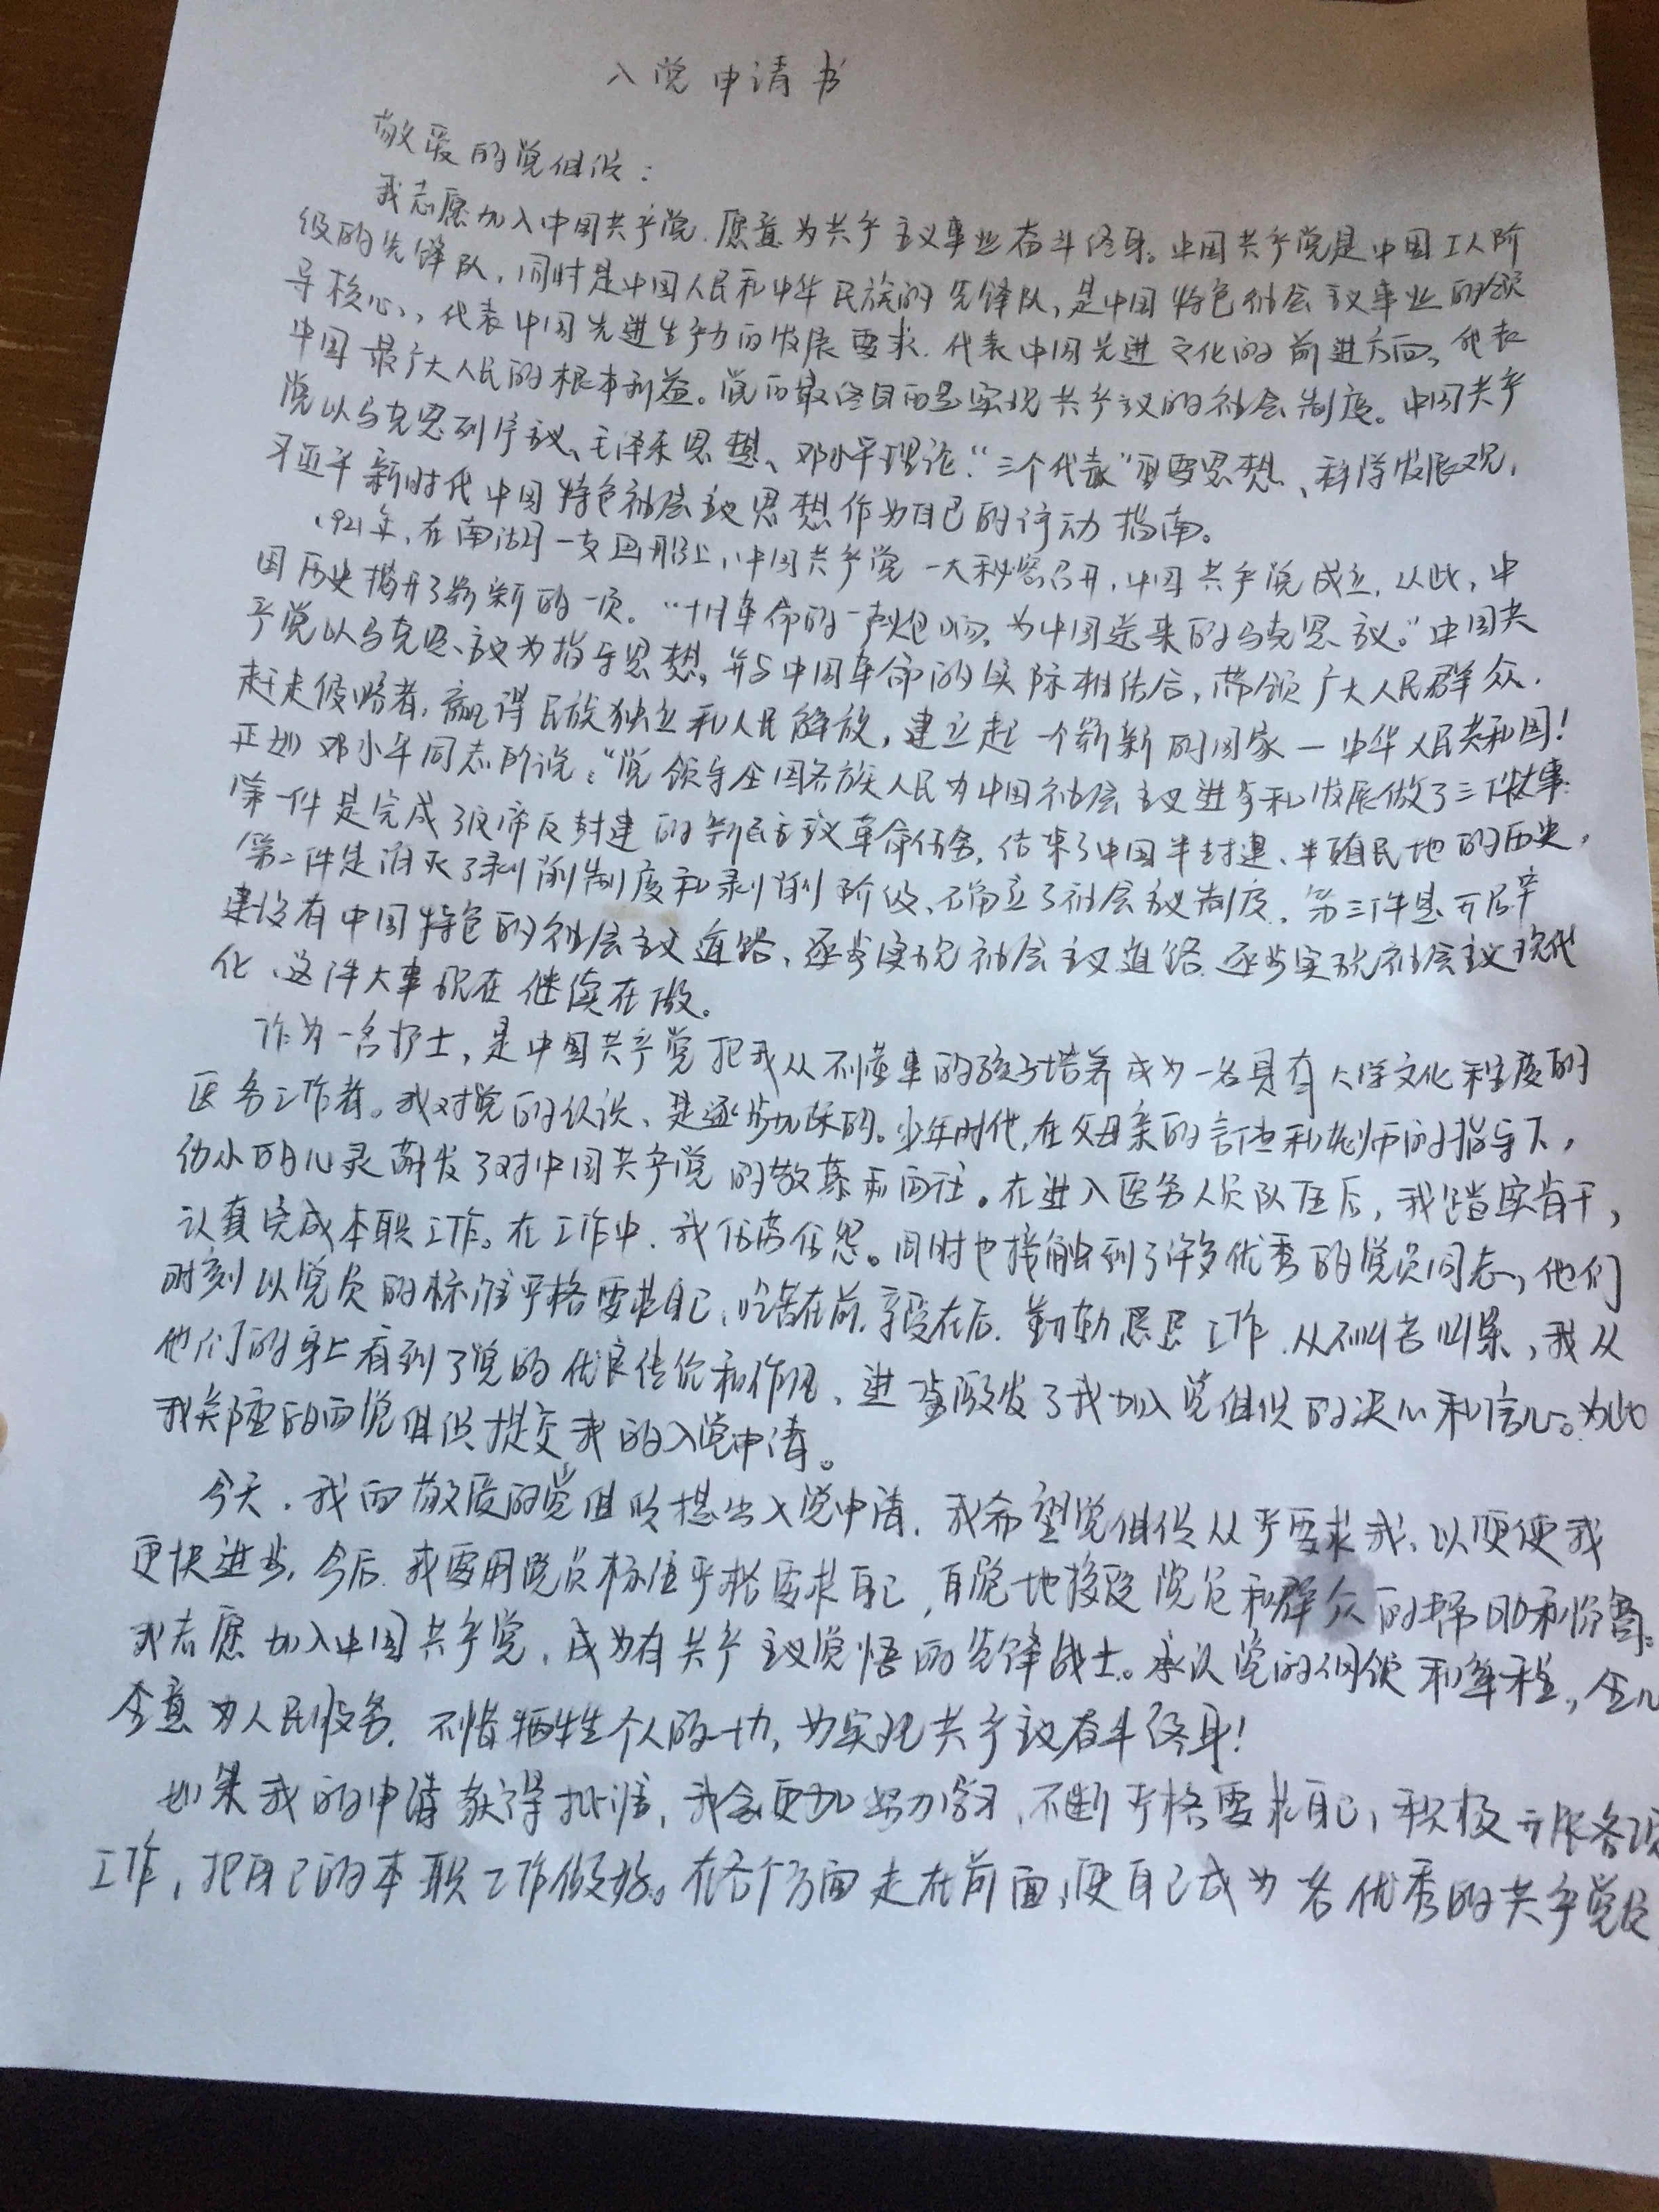 入党申请书
敬爱的党组织：
我志愿加入中国共产党，愿意为共产主义事业奋斗终身。中国共产党是中国工人阶
级的先锋队，同时是中国人民和中华民族的先锋队，是中国特色社会主义事业的领
导核心，代表中国先进生产力的发展要求，代表中国先进文化的前进方向，代表
中国最广大人民的根本利益。党的最终目的是实现共产主义的社会制度。中国共产
党以马克思列宁主义、毛泽东思想、邓小平理论、“三个代表”重要思想、科学发展观，
习近平新时代中国特色社会主义思想作为自己的行动指南。
1921年，在南湖一支画船上，中国共产党一大秘密召开，中国共产党成立，从此，中
国历史揭开了崭新的一页。“十月革命的一声炮响，为中国送来的马克思主义。”中国共
产党以马克思主义为指导思想，并与中国革命的实际相结合，带领广大人民群众，
赶走侵略者，赢得民族独立和人民解放，建立起一个崭新的国家—中华人民共和国！
正如邓小平同志所说：“党领导全国各族人民为中国社会主义进步和发展做了三件大事：
第一件是完成了反帝反封建的新民主主义革命任务，结束了中国半封建、半殖民地的历史，
第二件是消灭了剥削制度和剥削阶级，确立了社会主义制度，第三件是开辟
建设有中国特色的社会主义道路，逐步实现社会主义道路，逐步实现社会主义现代
化，这件大事现在继续在做。
作为一名护士，是中国共产党把我从不懂事的孩子培养成为一名具有大学文化程度的
医务工作者。我对党的认识，是逐步加深的。少年时代，在父母亲的言传和老师的指导下，
幼小的心灵萌发了对中国共产党的敬慕和向往。在进入医务人员队伍后，我踏实肯干，
认真完成本职工作。在工作中，我任劳任怨。同时也接触到了许多优秀的党员同志，他们
时刻以党员的标准严格要求自己，吃苦在前，享受在后，勤勤恳恳工作，从不叫苦叫累，我从
他们的身上看到了党的优良传统和作风，进一步激发了我加入党组织的决心和信心。为此
我郑重的向党组织提交我的入党申请。
今天，我向敬爱的党组织提出入党申请，我希望党组织从严要求我，以便使我
更快进步，今后，我要用党员标准严格要求自己，自觉地接受党员和群众的帮助和监督。
我志愿加入中国共产党，成为有共产主义觉悟的先锋战士。承认党的纲领和章程，全心
全意为人民服务，不惜牺牲个人的一切，为实现共产主义奋斗终身！
如果我的申请获得批准，我会更加努力学习，不断严格要求自己，积极开展各项
工作，把自己的本职工作做好。在各个方面走在前面，使自己成为名优秀的共产党员